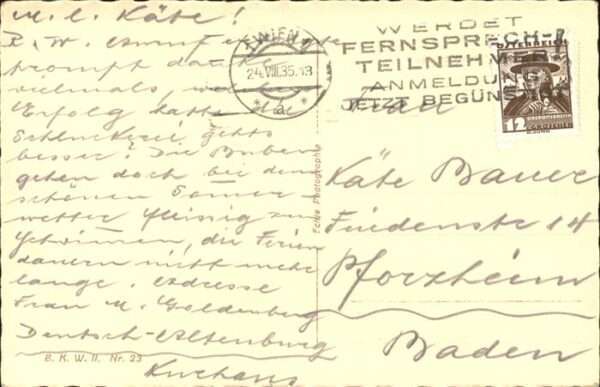 M. l. Käte!
B. W. Anruf erhalten
prompt danke
vielmals, welchen
Erfolg hatte die
geht's
besser? Die Buben
gehen doch bei dem
schönen Somer-
wetter fleissig zum
Schwimen, die Ferien
dauern nicht mehr
lange. Adresse
Frau M. Goldenberg
Deutsch-Altenburg
Kurhaus
B. K. W. II. Nr. 23
Echte Photographie
WIEN
24.VIII.35.13
WERDET
FERNSPRECH-
TEILNEHMER
ANMELDUNG
JETZT BEGÜNSTIGT
ÖSTERREICH
12
Frau
Käte Bauer
Friedenstr 14
Pforzheim
Baden